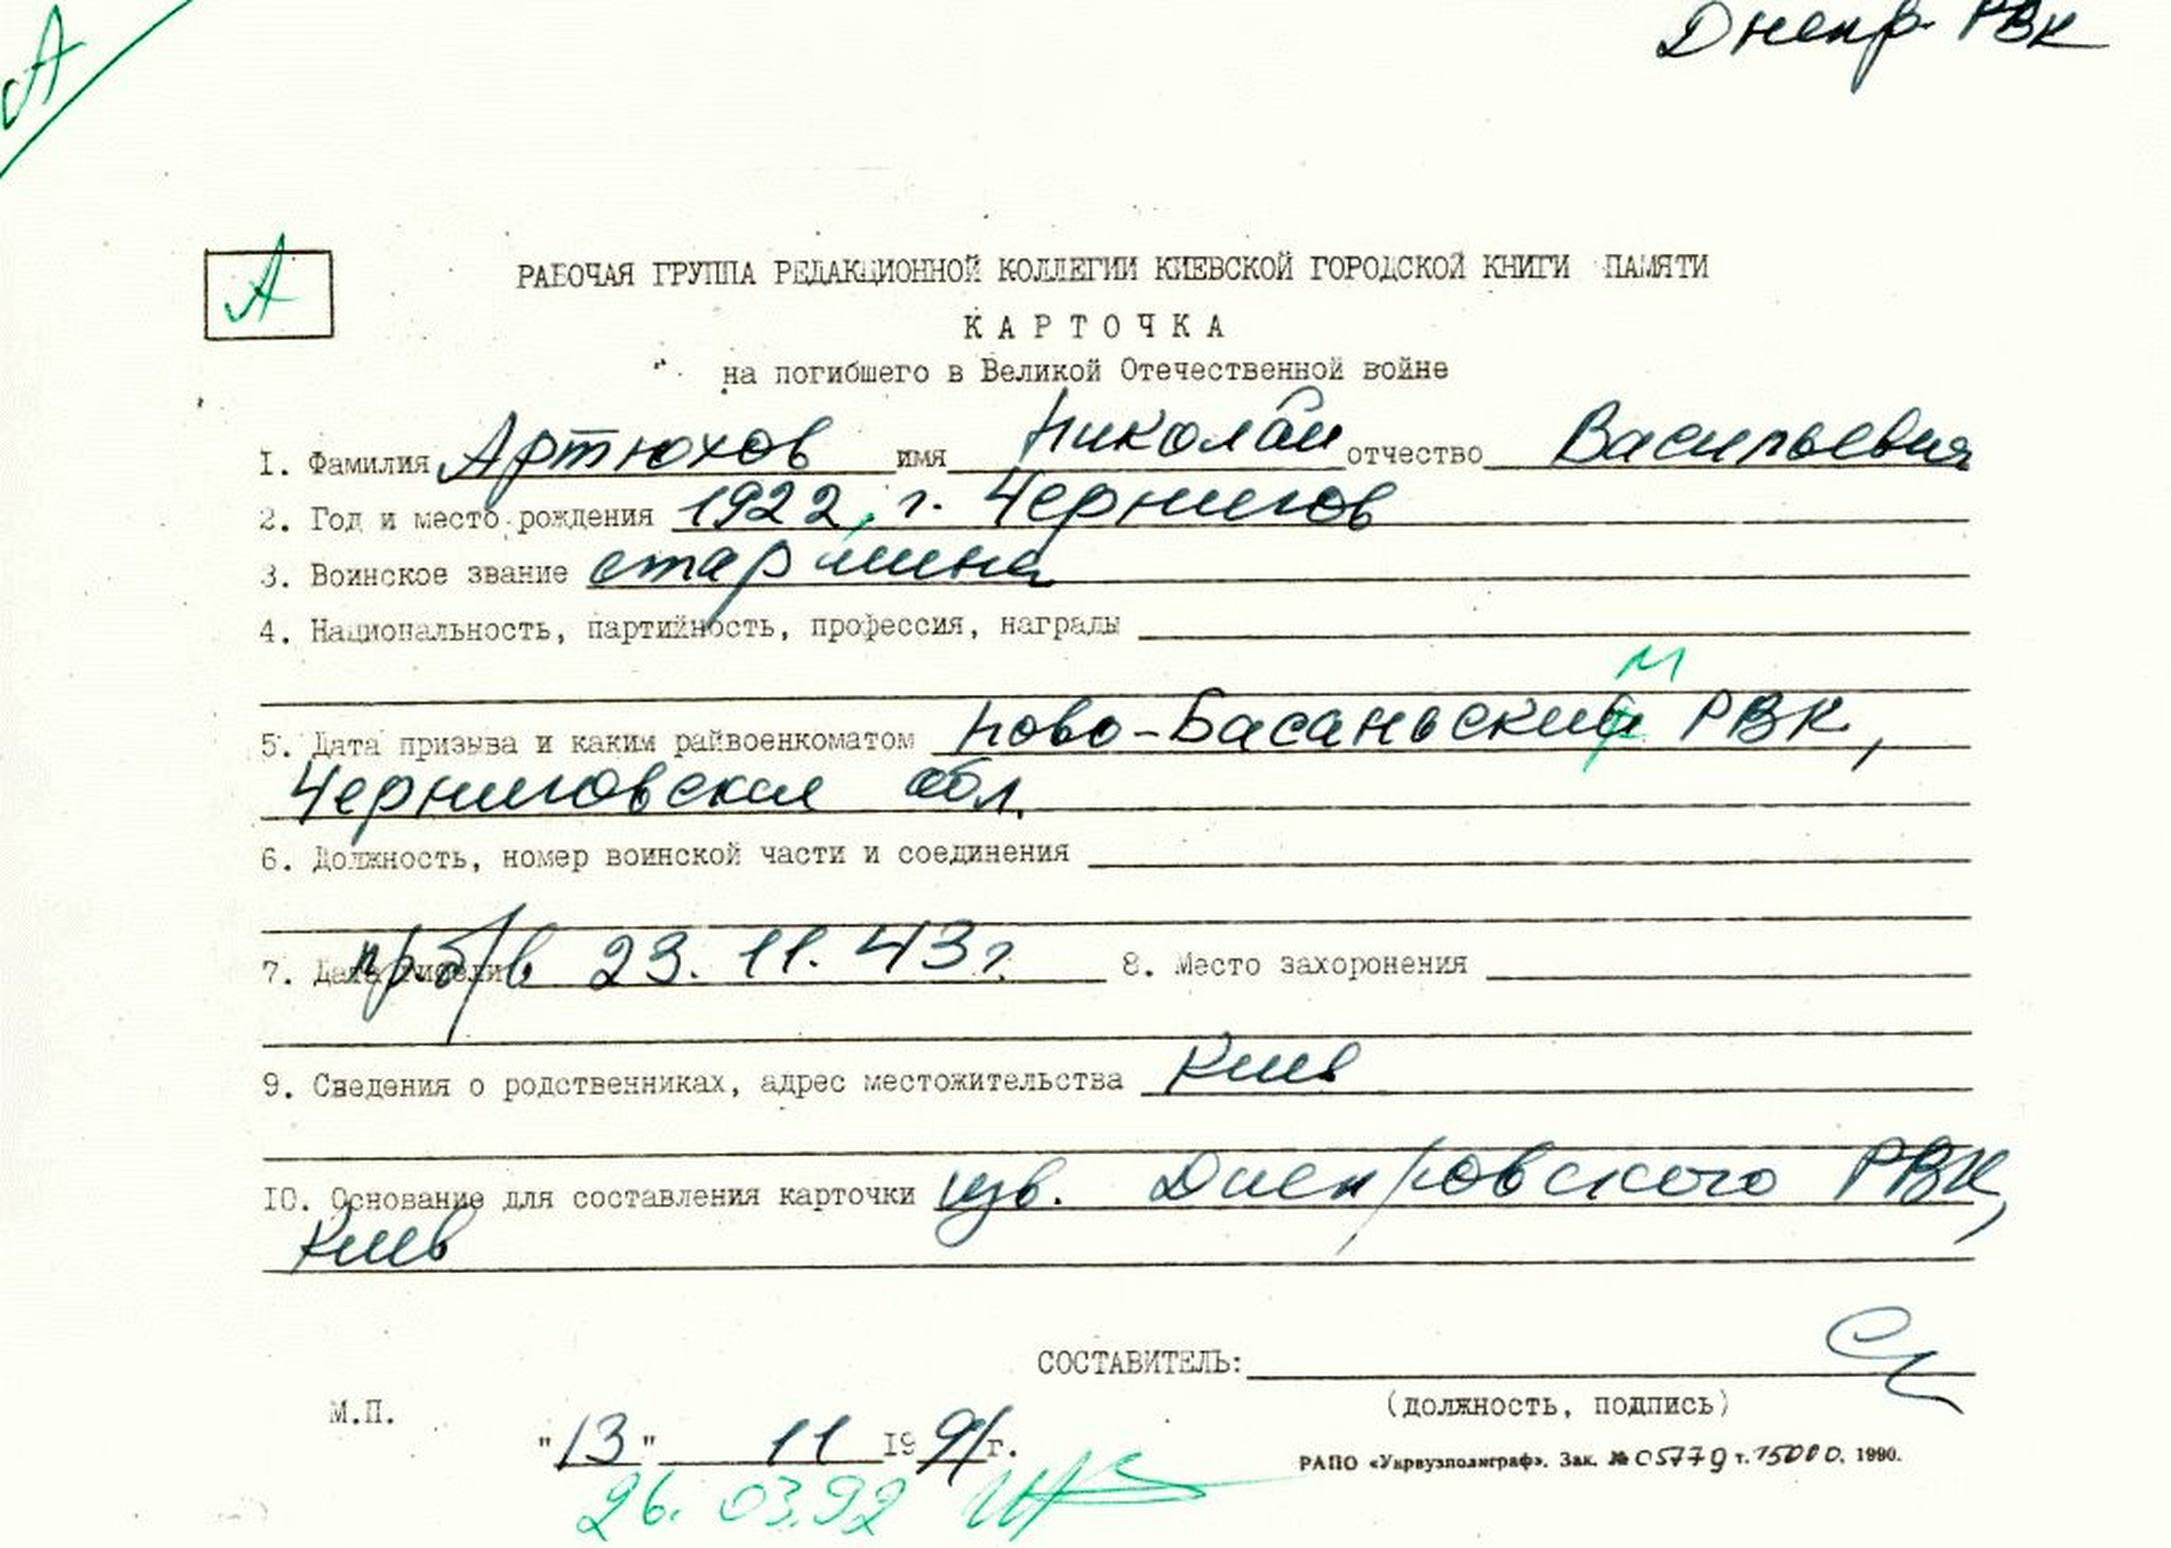 А
Днепр. РВК
А
РАБОЧАЯ ГРУППА РЕДАКЦИОННОЙ КОЛЛЕГИИ КИЕВСКОЙ ГОРОДСКОЙ КНИГИ ПАМЯТИ
КАРТОЧКА
на погибшего в Великой Отечественной войне
I. Фамилия Артюхов имя Николай отчество Васильевич
2. Год и место рождения 1922, г. Чернигов
3. Воинское звание старшина
4. Национальность, партийность, профессия, награды
м
5. Дата призыва и каким райвоенкоматом Ново-Басаньский РВК,
Черниговская обл.
6. Должность, номер воинской части и соединения
7. Дата гибели пр.б/в 23.11.43г. 8. Место захоронения
9. Сведения о родственниках, адрес местожительства Киев
10. Основание для составления карточки изв. Днепровского РВК,
Киев
СОСТАВИТЕЛЬ:
(должность, подпись)
М.П.
"13" 11 1991г.
РАПО «Укрвузполиграф». Зак. № 05779 т. 15000. 1990.
26.03.92